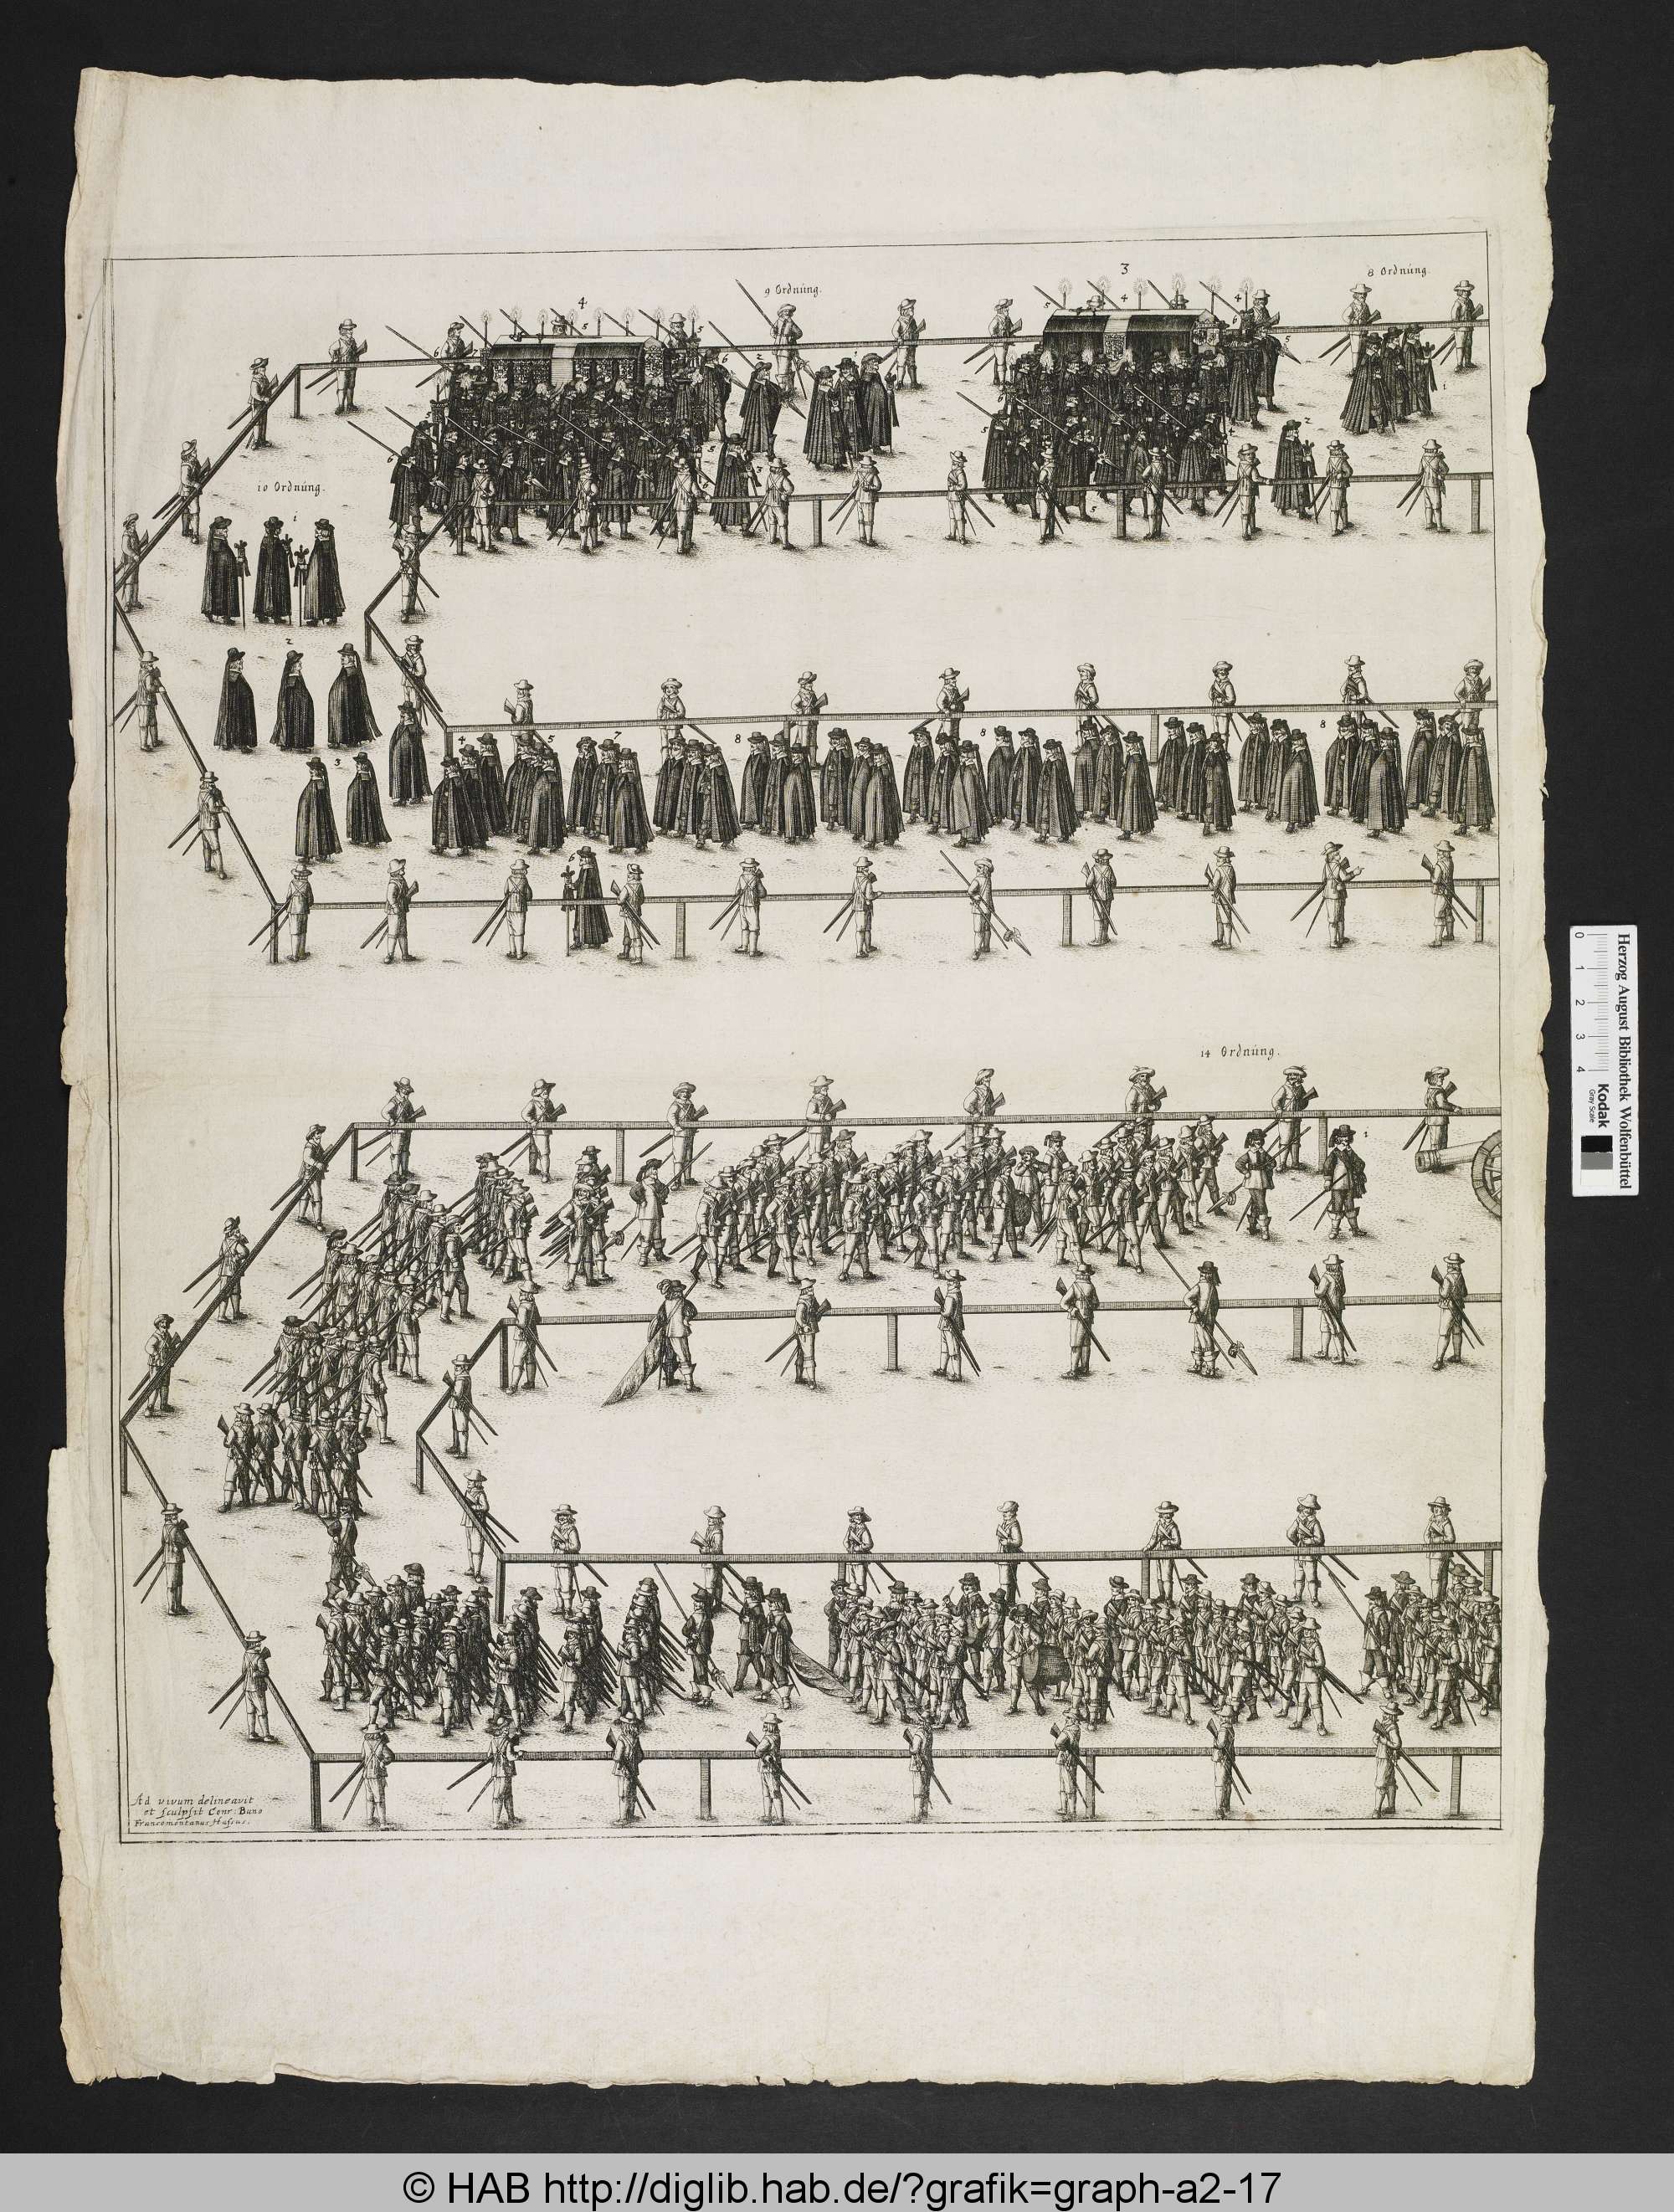 3
8 Ordnúng.
4
9 Ordnúng.
5
4
4
5
5
5
6
6
6
2
1
5
1
2
5
5
3
5
6
10 Ordnúng.
1
2
3
4
5
7
8
8
8
6
14 Ordnúng.
1
Ad vivum delineavit
et sculpsit Conr: Buno
Francomontanus Hassus.
Herzog August Bibliothek Wolfenbüttel
0 1 2 3 4
Kodak
Gray Scale
© HAB http://diglib.hab.de/?grafik=graph-a2-17